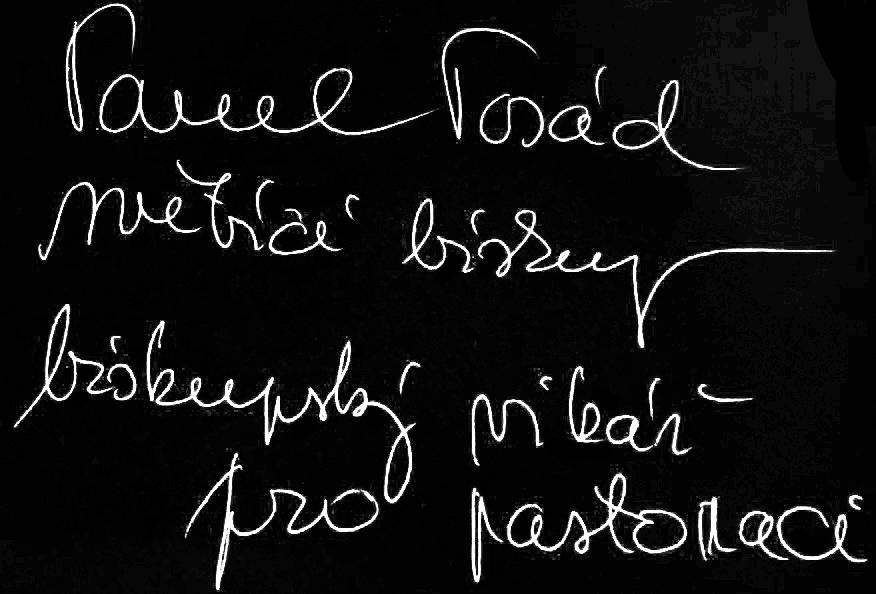 Pavel Posád
světící biskup
biskupský vikář
pro pastoraci